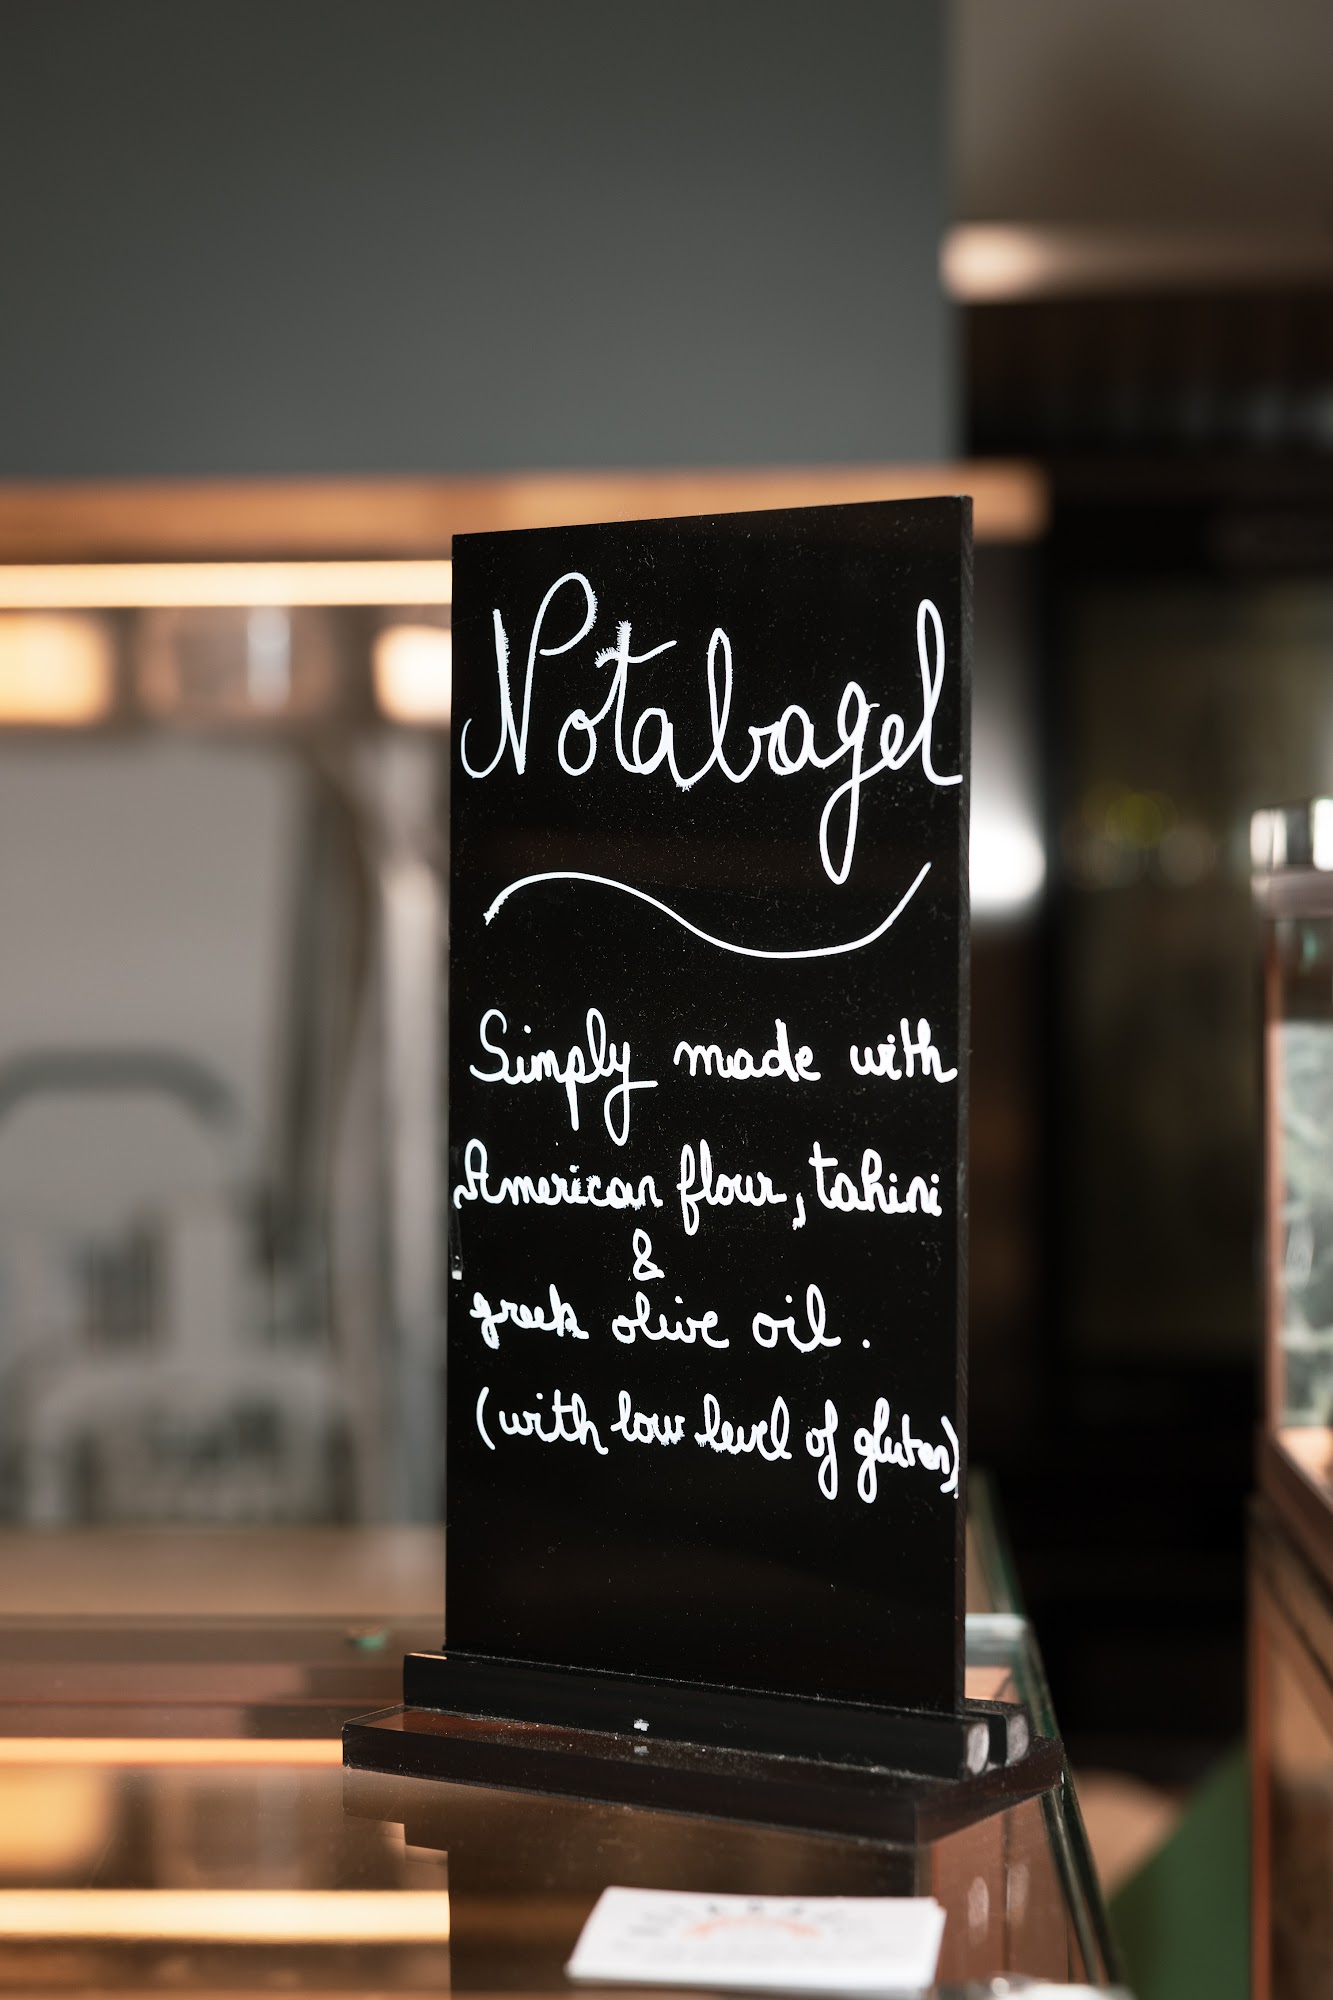 Notabagel
Simply made with
American flour, tahini
&
greek olive oil.
(with low level of gluten)